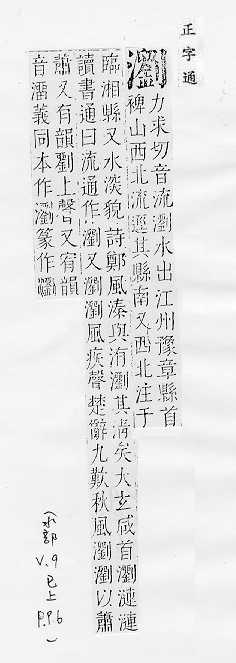 正字通
瀏
力求切音流瀏水出江州豫章縣首
裨山西北流逕其縣南又西北注于
臨湘縣又水淡貌詩鄭風溱與洧瀏其淸矣大玄咸首瀏漣漣
讀書通曰流通作瀏又瀏瀏風疾聲楚辭九歎秋風瀏瀏以蕭
蕭又有韻劉上聲又宥韻
音溜義同本作瀏篆作
(水部
V.9 巳上
P.P6)